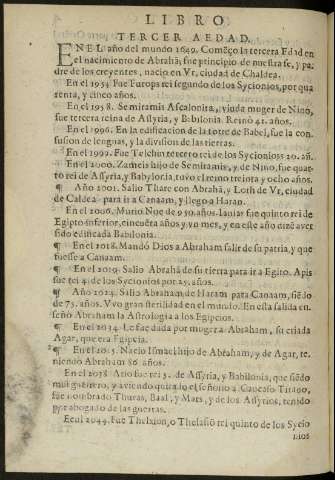 LIBRO
TERCER AEDAD.
EN EL año del mundo 1649. Comẽço la tercera Edad en
el nacimiento de Abrahã, fue principio de nuestra fe, y pa
dre de los creyentes, nacio en Vr, ciudad de Chaldea.
En el 1954 Fue Europs rei segundo de los Sycionios, por qua
renta, y cinco años.
En el 1958. Semiramis Ascalonita, viuda muger de Nino,
fue tercera reina de Assyria, y Babilonia. Reinò 42. años.
En el 1996. En la edificacion de la torre de Babel, fue la con
fusion de lenguas, y la division de las tierras.
En el 1999. Fue Telchin tercero rei de los Sycionios 20. añ.
En el 2000. Zameis hijo de Semiramis, y de Nino, fue quar
to rei de Assyria, y Babylonia, tuvo el reino treinta y ocho años.
¶ Año 2001. Salio Thare con Abrahã, y Loth de Vr, ciudad
de Caldea para ir a Canaam, y llego a Haran.
En el 2006. Murio Noe de 950. años. fue quinto rei de
Egipto inferior, cincuẽta años y vn mes, y en este año dizẽ aver
sido edificada Babilonia.
¶ En el 2018. Mandó Dios a Abraham salir de su patria, y que
fuesse a Canaam.
¶ En el 2019. Salio Abrahã de su tierra para ir a Egito. Apis
fue rei 4. de los Sycionios por 25. años.
¶ Año 2024. Salio Abraham de Haram para Canaam, siẽdo
de 75. años. Vvo gran sterilidad en el mundo. En esta salida en
señò Abraham la Astrologia a los Egipcios.
¶ En el 2034. Le fue dada por muger a Abraham, su criada
Agar, que era Egipcia.
¶ En el 2035. Nacio Ismael hijo de Abraham, y de Agar, te
niendo Abraham 86. años.
¶ En el 2038 Ario fue rei 5. de Assyria, y Babilonia, que siẽdo
mui guerrero, y aviendo quitado el señorio a Caucaso Titano,
fue nombrado Thuras, Baal, y Mars, y de los Assyrios, tenido
por abogado de las guerras.
En el 2049. Fue Thelxion, o Thelasio rei quinto de los Sycio
nios